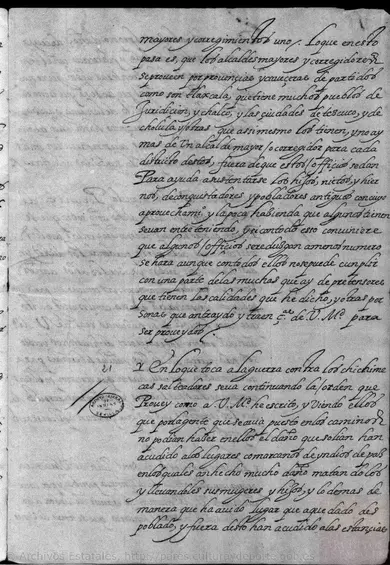 mayores y corregimientos uno/. Lo que en esto
pasa es, que los alcaldes mayores y corregidores
se proveen por provincias y caueceras de partidos
como son tlaxcala, que tiene muchos pueblos de
Juridicion, y chalco, y las ciudades de tescuco, y de
cholula y otras que assi mesmo los tienen, y no ay
mas de Un alcalde mayor o corregidor para cada
districto destos, fuera de que estos officios se dan
Para ayuda a sustentarse los hijos, nietos, y hier
nos, de conquistadores y pobladores antiguos con cuyo
aprouechami, y la poca hazienda que algunos tienen
se van entreteniendo, y si con todo esto conuiniere
que algunos officios se reduzgan a menos numero
se hara aunque con todos ellos no se puede cumplir
con una parte de las muchas que ay de pretensores
que tienen las calidades que he dicho, y otras per
sonas que an traydo y traen de V. Md. para
ser proueydos/.
21
En lo que toca a la guerra contra los chichime
cas salteadores se va continuando la orden que
Prouey como a V. Md. he escrito, y Viendo ellos
que por a gente que se auia puesto en los caminos
no podian haber en ellos el daño que solian han
acudido a los lugares comarcanos de yndios de paz
en los quales an hecho mucho daño matandolos
y lleuandoles sus mugeres y hijos, y lo demas de
manera que ha auido lugar que a quedado des
poblado, y fuera desto han acudido a las estancias
Archivos Estatales,